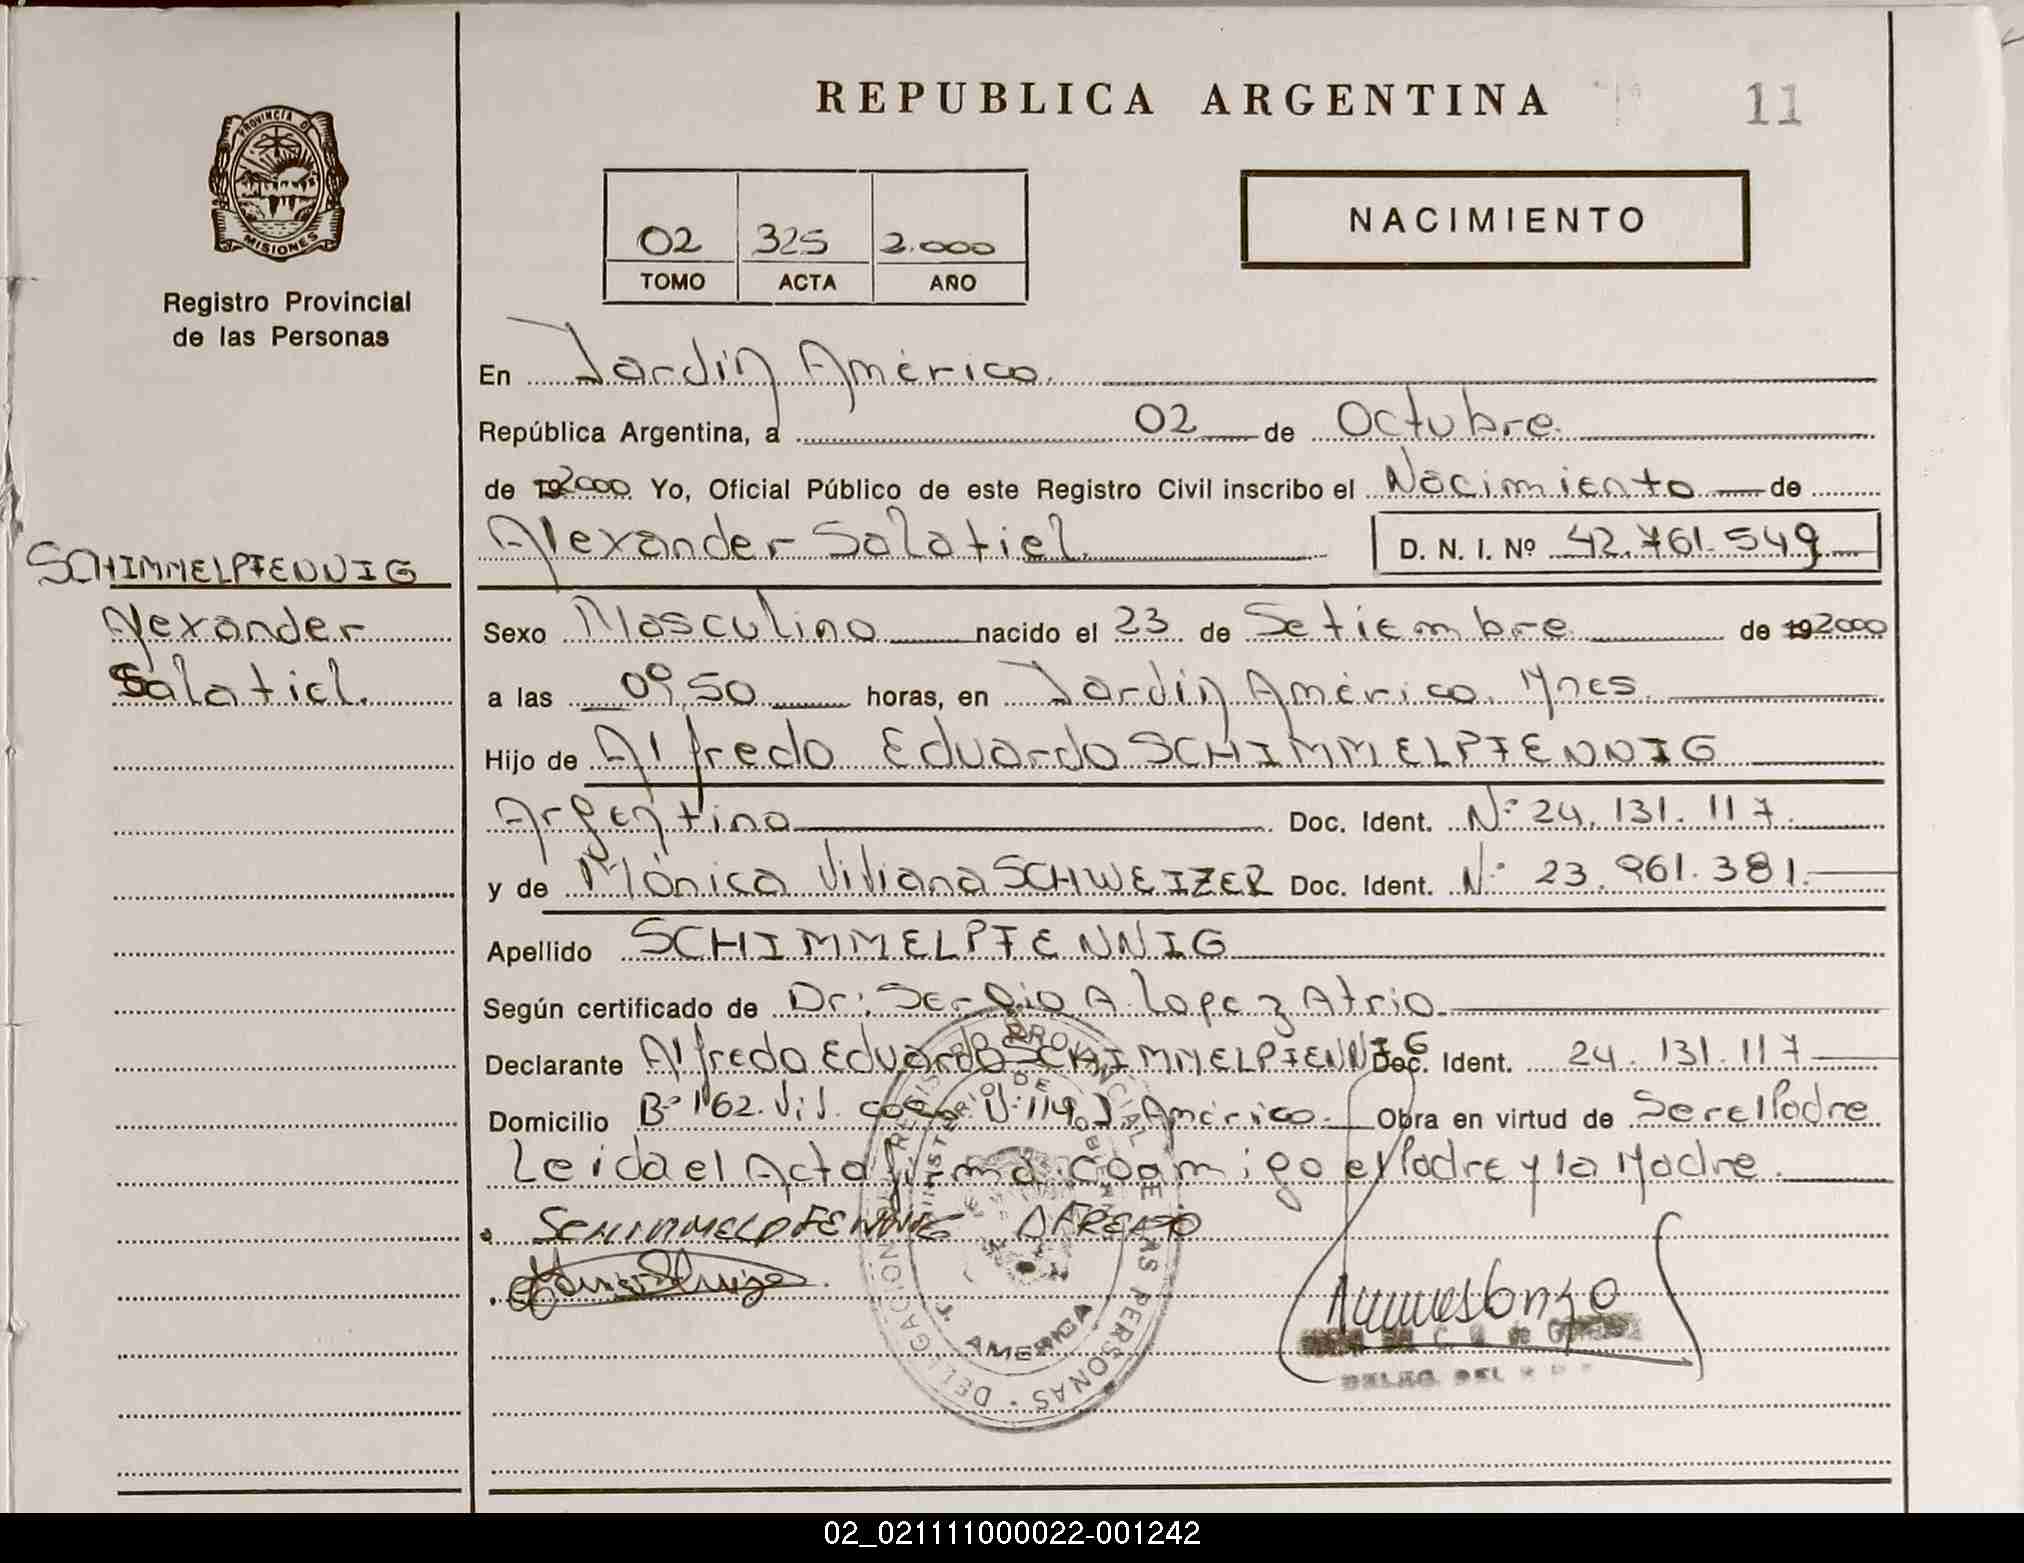 REPUBLICA ARGENTINA
11
PROVINCIA DE
MISIONES
Registro Provincial
de las Personas
02 325 2.000
TOMO ACTA AÑO
NACIMIENTO
En Jardín América.
República Argentina, a 02 de Octubre.
de 192000 Yo, Oficial Público de este Registro Civil inscribo el Nacimiento de
Alexander Salatiel. D. N. I. Nº 42.761.549
SCHIMMELPFENNIG
Alexander
Salatiel.
Sexo Masculino nacido el 23 de Setiembre de 192000
a las 09,50 horas, en Jardín América. Mnes.
Hijo de Alfredo Eduardo SCHIMMELPFENNIG
Argentino Doc. Ident. Nº 24.131.117.
y de Mónica Viviana SCHWEIZER Doc. Ident. Nº 23.961.381.
Apellido SCHIMMELPFENNIG
Según certificado de Dr: Sergio A. Lopez Atrio.
Declarante Alfredo Eduardo SCHIMMELPFENNIG Doc. Ident. 24.131.117
Domicilio Bº 162. Viv. J. América. Obra en virtud de Ser el Padre
Leida el Acta firma conmigo el Padre y la Madre.
SCHIMMELPFENNIG
REGISTRO PROVINCIAL DE LAS PERSONAS · DELEGACION
MINISTERIO DE GOBIERNO
J. AMERICA
DELEG. DEL
02_021111000022-001242